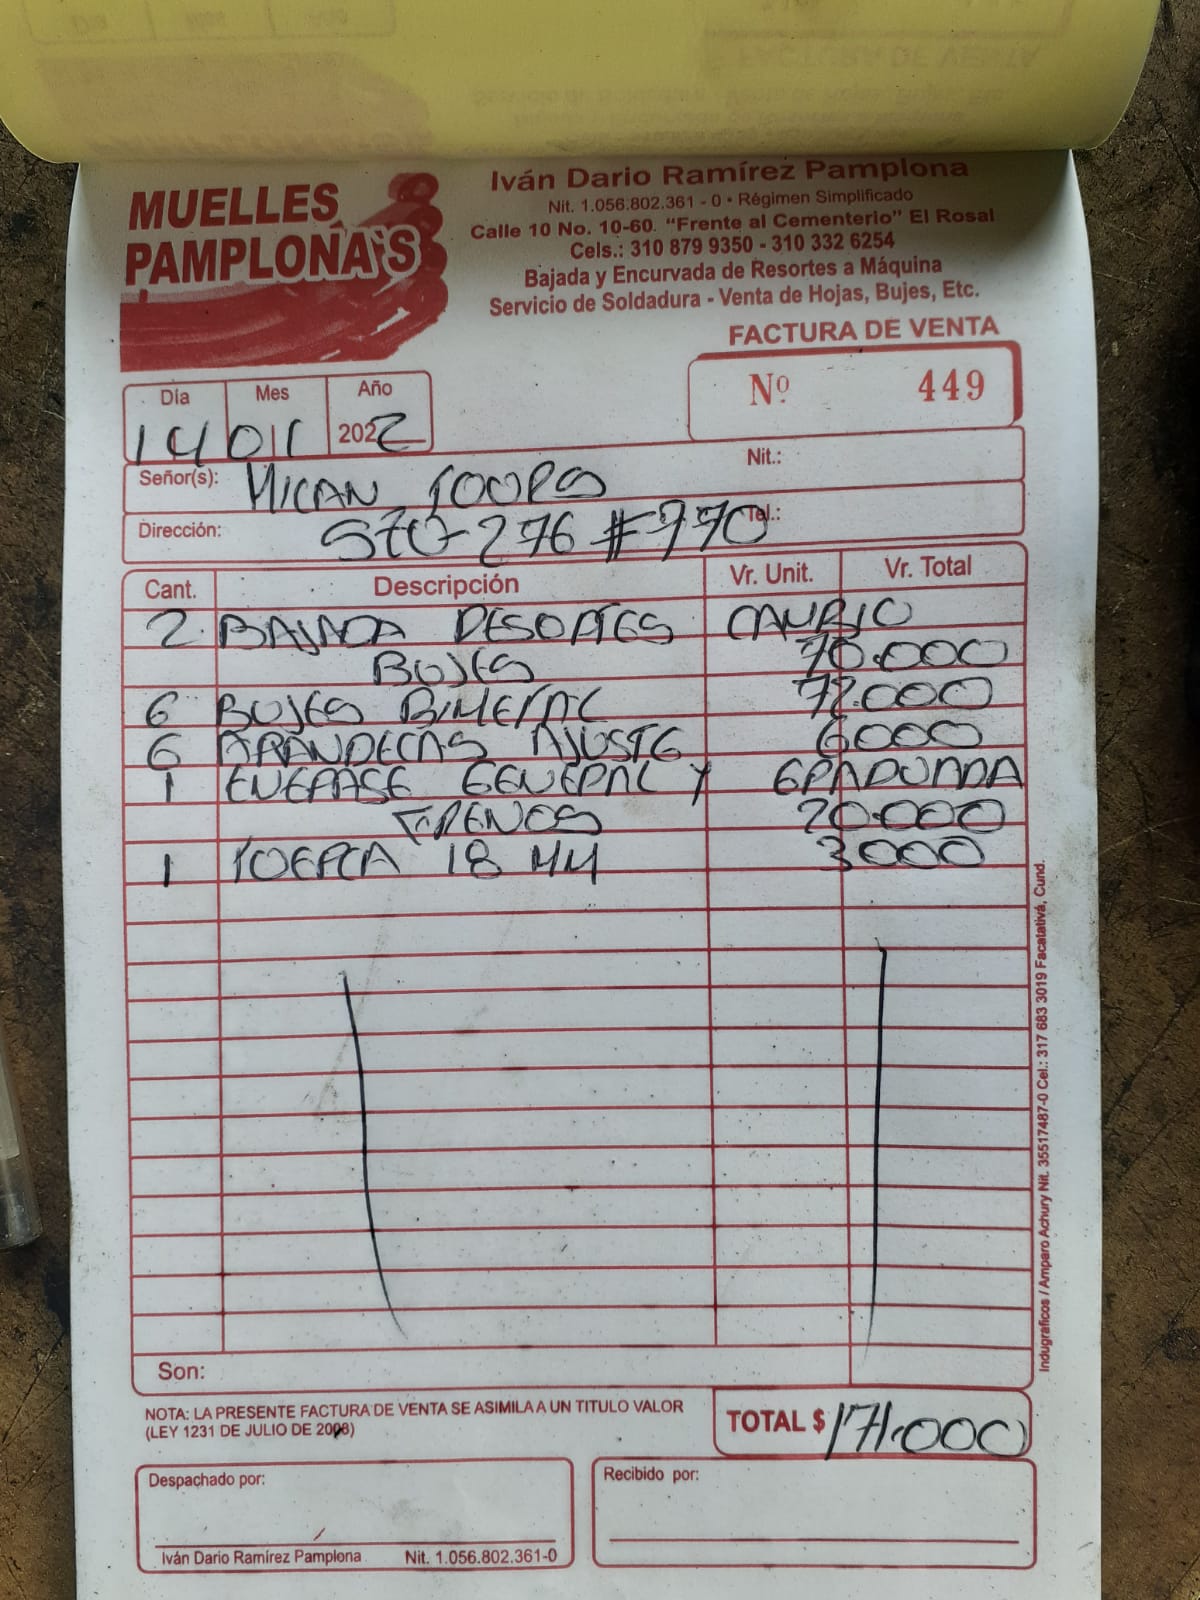 MUELLES
PAMPLONA'S
Iván Dario Ramírez Pamplona
Nit. 1.056.802.361 - 0 • Régimen Simplificado
Calle 10 No. 10-60. "Frente al Cementerio" El Rosal
Cels.: 310 879 9350 - 310 332 6254
Bajada y Encurvada de Resortes a Máquina
Servicio de Soldadura - Venta de Hojas, Bujes, Etc.
FACTURA DE VENTA
Nº 449
Día Mes Año
14 01 2022
Señor(s): MICAN TOOPS Nit.:
Dirección: #770 Tel.:
Cant. Descripción Vr. Unit. Vr. Total
2 BAJADA RESORTES CAMBIO
BUJES 70.000
6 BUJES BIMETAL 72.000
6 ARANDELAS AJUSTE 6000
1 ENGRASE GENERAL Y GRADUADA
FRENOS 20.000
1 TUERCA 18 MM 3000
Son:
NOTA: LA PRESENTE FACTURA DE VENTA SE ASIMILA A UN TITULO VALOR
(LEY 1231 DE JULIO DE 2008)
TOTAL $ 171.000
Despachado por:
Iván Dario Ramírez Pamplona Nit. 1.056.802.361-0
Recibido por:
Indugraficos / Amparo Achury Nit. 35517487-0 Cel.: 317 683 3019 Facatativá, Cund.